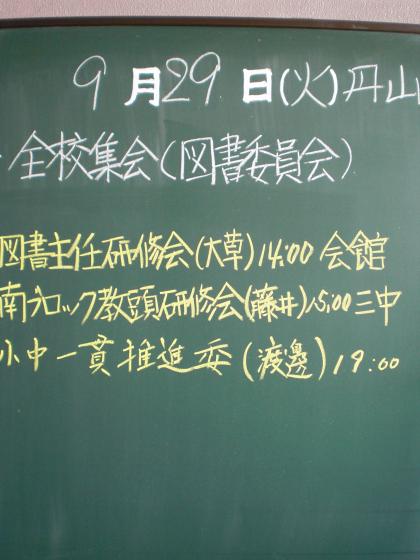 9月29日(火)丹山
全校集会(図書委員会)
図書主任研修会(大草)14:00会館
南ブロック教頭研修会(藤井)15:00三中
小中一貫推進委(渡邊)19:00